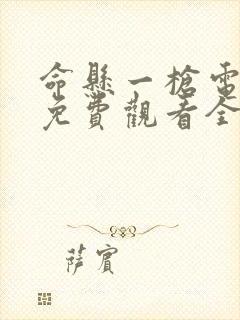 命懸一槍電
免費觀看全
薩賓